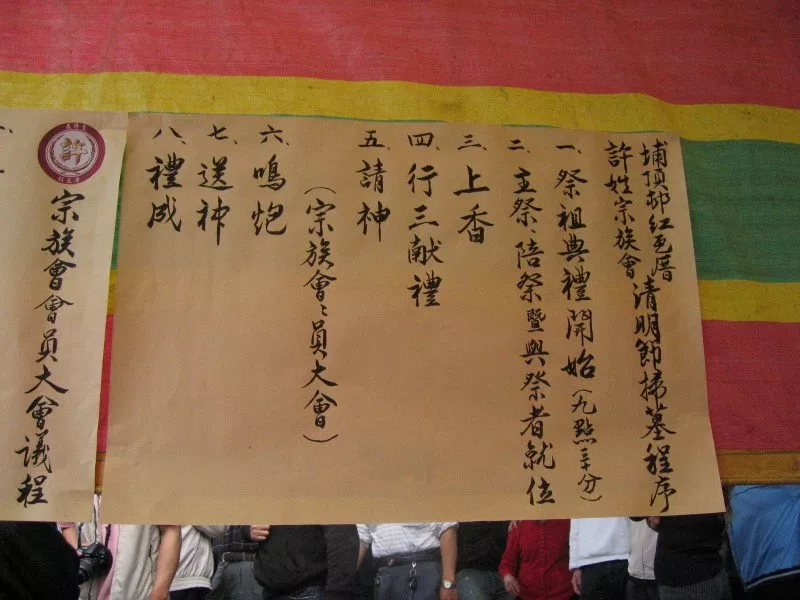 埔頂邨紅瓦厝
許姓宗族會
清明節掃墓程序
一、祭祖典禮開始(九點三十分)
二、主祭、陪祭暨與祭者就位
三、上香
四、行三献禮
五、請神
(宗族會〻員大會)
六、鳴炮
七、送神
八、禮成
許
宗族會會員大會議程